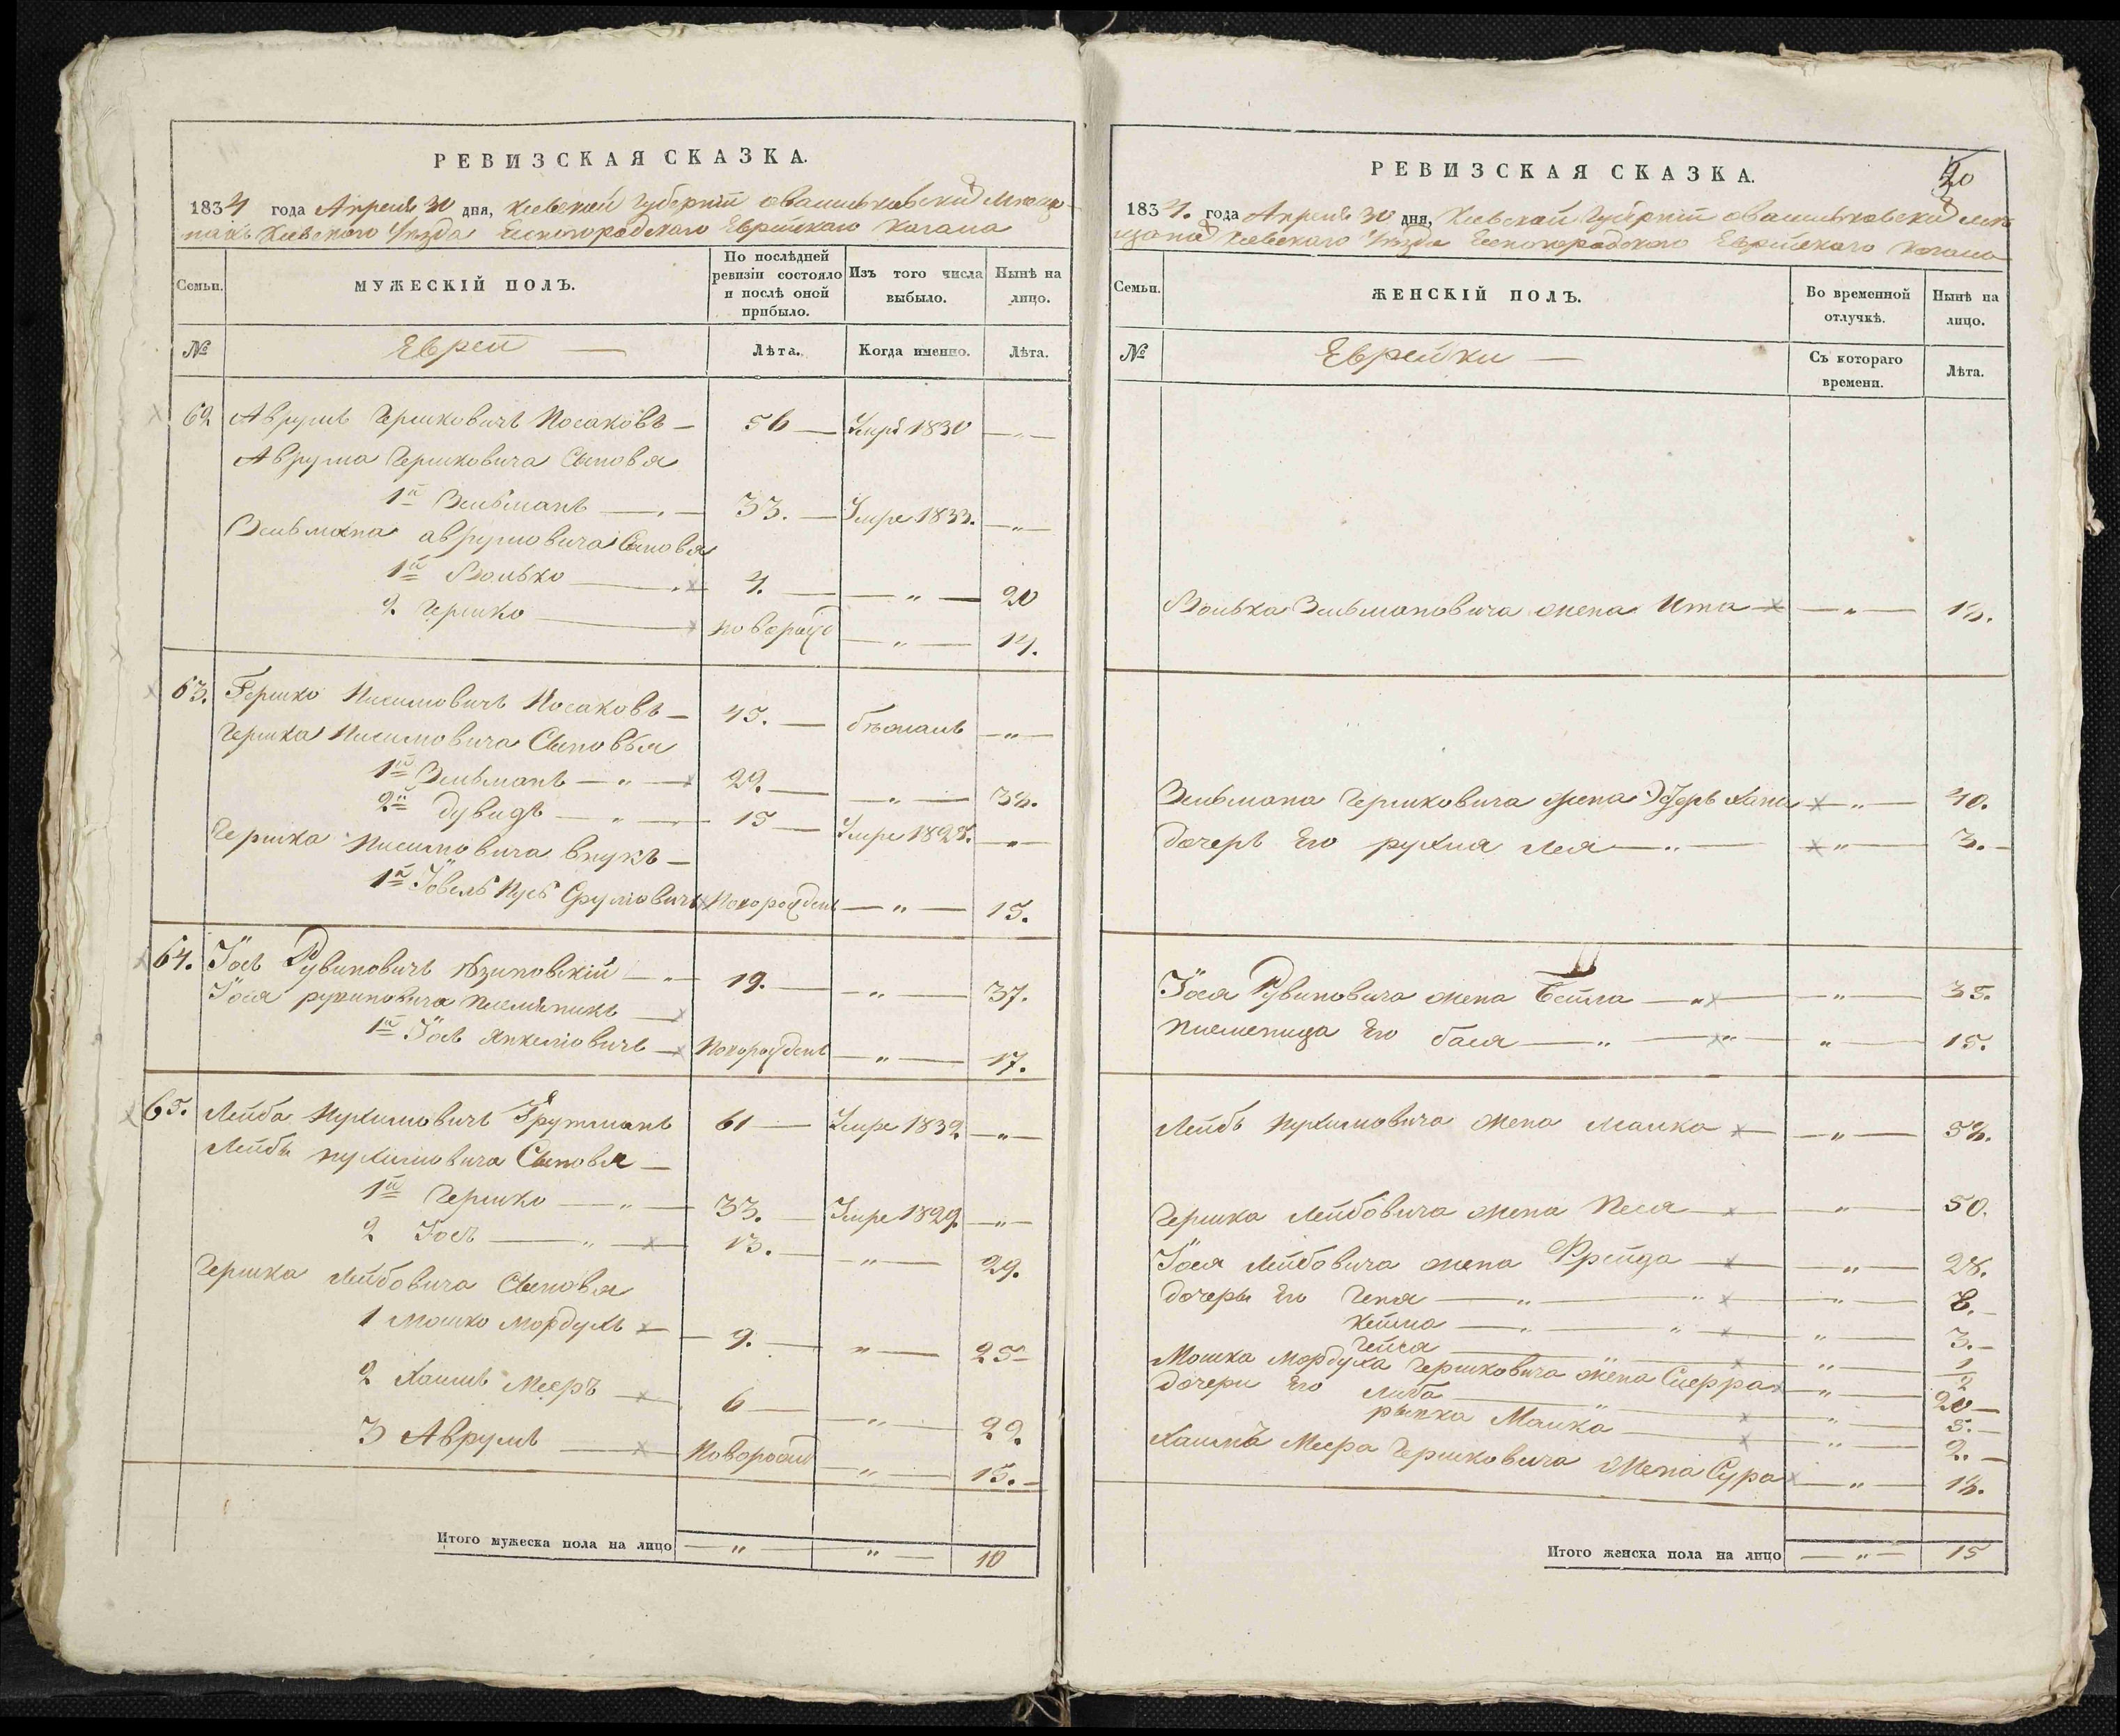 РЕВИЗСКАЯ СКАЗКА.
1834 года Апреля 30 дня, Киевской Губерніи о васильковскихъ Мѣща-
нахъ Киевского Уѣзда Еврейскаго Кагала
Семьи.
МУЖЕСКІЙ ПОЛЪ.
По послѣдней ревизіи состояло и послѣ оной прибыло.
Изъ того числа выбыло.
Нынѣ на лицо.
№
Евреи —
Лѣта.
Когда именно.
Лѣта.
62 Аврумъ Гершковичъ Носаковъ — 56 — Умре 1830 — „ —
Аврума Гершковича Сыновья
1й Зельманъ — 33. — Умре 1833. — „ —
Зельмана аврумовича Сыновья
1й Волько — 4. — „ — 20
2 Гершко — новорожд — „ — 14.
63. Гершко Нисимовичъ Носаковъ — 45. — бѣжалъ — „ —
Гершка Нисимовича Сыновья
1й Зельманъ — „ — 22. — „ — 38.
2й дувидъ — „ — 15 — Умре 1825. — „ —
Гершка Нисимовича внукъ —
1й Срулювичъ Новорожденъ — „ — 15.
64. Іось Рувиновичъ — „ 19. — „ — 37.
Іося рувиновича племянникъ —
1й Іось Янкелювичъ — Новорожденъ — „ — 17.
65. Лейба Нухимовичъ Трутманъ 61 — Умре 1832. — „ —
Лейбы нухимовича Сыновья —
1й Гершко — „ — 33. — Умре 1829. — „ —
2 Іось — „ — 13. — „ — 29.
Гершка Лейбовича Сыновья
1 Мошко Мордухъ — 9. — „ — 25 —
2 Хаимъ Мееръ — 6 — „ — 22.
3 Аврумъ — Новорожд — „ — 15. —
Итого мужеска пола на лицо — „ — „ — 10
РЕВИЗСКАЯ СКАЗКА.
20
1834. года Апреля 30 дня, Киевской Губерніи о васильковскихъ Мѣ-
щанахъ Киевского Уѣзда Еврейскаго Кагала
Семьи.
ЖЕНСКІЙ ПОЛЪ.
Во временной отлучкѣ.
Нынѣ на лицо.
№
Еврейки —
Съ котораго времени.
Лѣта.
Волька Зельмановича жена Ита — „ — 18.
Зельмана Гершковича жена Хана — „ — 40.
дочерь Его рухля Лея — „ — 3. —
Іося Рувиновича жена Бейла — „ — „ — 35.
племеница Его бася — „ — „ — 15.
Лейбы Нухимовича жена Малка — „ — 58.
Гершка Лейбовича жена Песя — „ — 50.
Іося Лейбовича жена Фрейда — „ — 28.
дочеры Его Геня — „ — „ — 8. —
Хейша — „ — „ — 3. —
Гейся — „ — 1/2
Мошка Мордуха Гершковича жена Сперра — „ — 20 —
дочери Его Либа — „ — 5. —
рывка Малка — „ — 2. —
Хаима Меера Гершковича жена Сура — „ — 18.
Итого женска пола на лицо — „ — 15